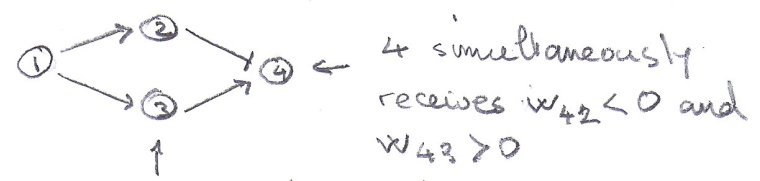 1
2
3
4
4 simultaneously
receives w₄₂ < 0 and
w₄₃ > 0